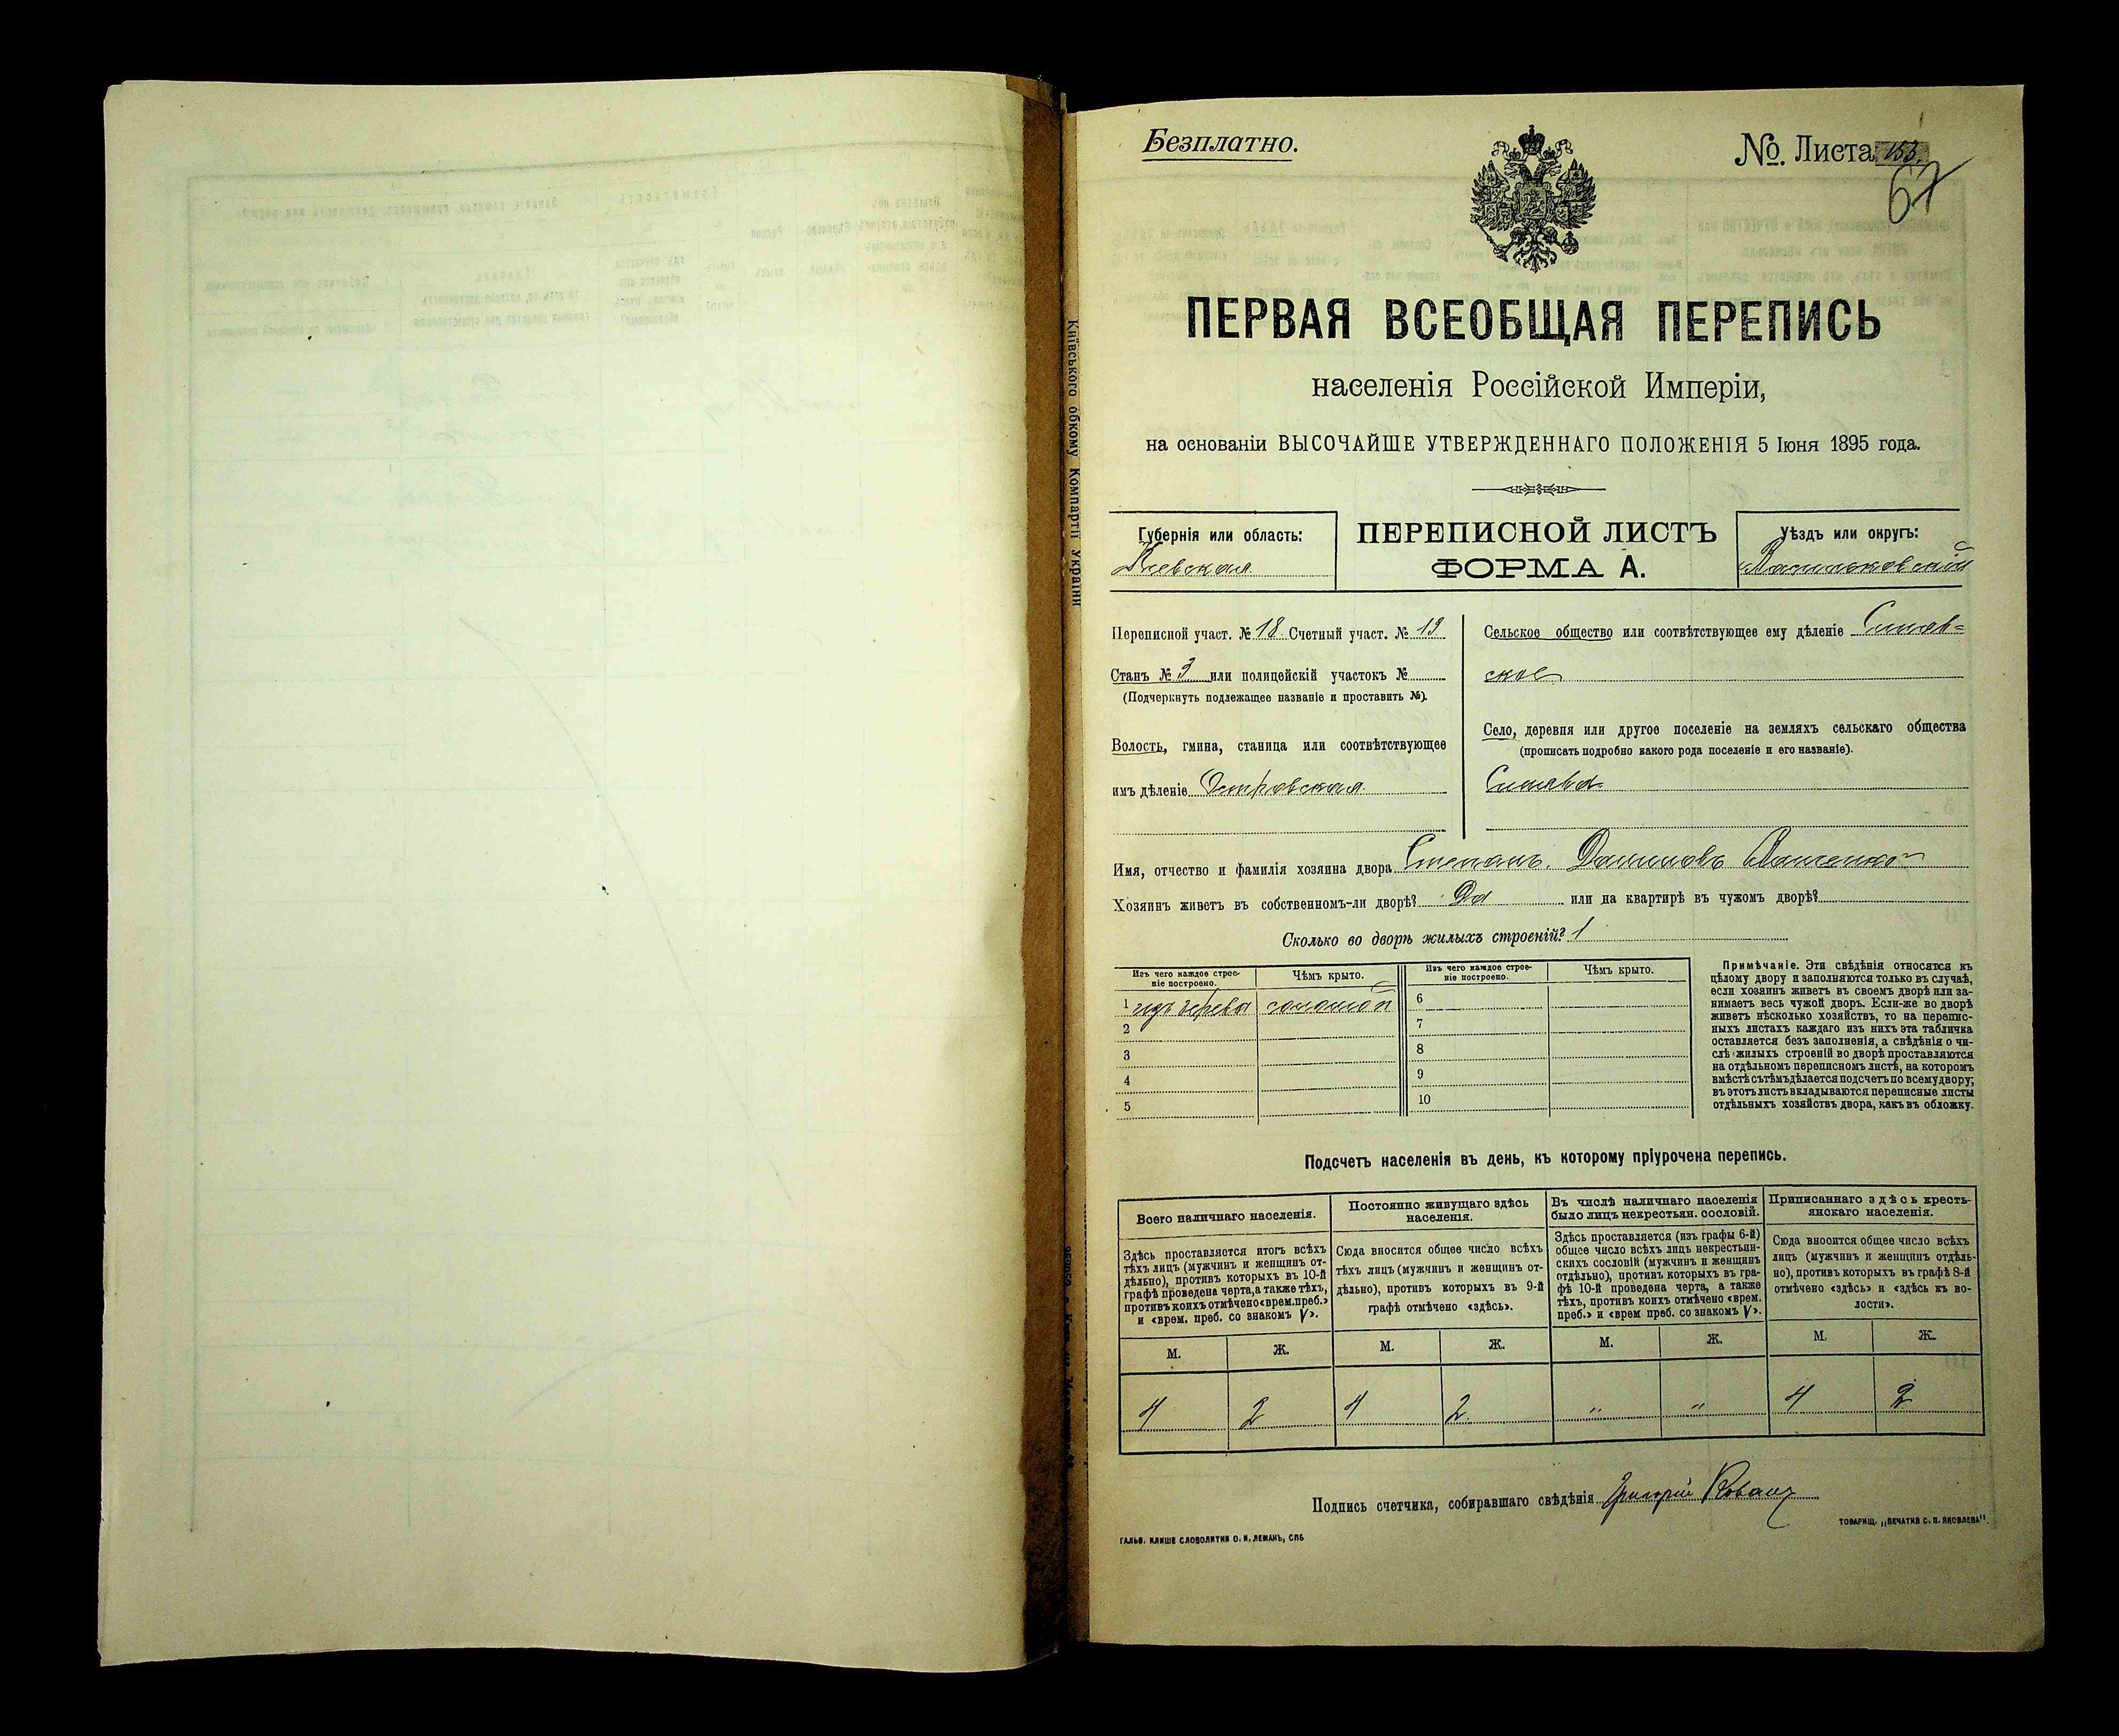 Безплатно.
№ Листа 153.
67
ПЕРВАЯ ВСЕОБЩАЯ ПЕРЕПИСЬ
населенія Россійской Имперіи,
на основаніи ВЫСОЧАЙШЕ УТВЕРЖДЕННАГО ПОЛОЖЕНІЯ 5 Іюня 1895 года.
Губернія или область:
Кіевская
ПЕРЕПИСНОЙ ЛИСТЪ
ФОРМА А.
Уѣздъ или округъ:
Васильковскій
Переписной участ. № 18 Счетный участ. № 19
Станъ № 3 или полицейскій участокъ №
(Подчеркнуть подлежащее названіе и проставить №).
Волость, гмина, станица или соотвѣтствующее
имъ дѣленіе Островская
Сельское общество или соотвѣтствующее ему дѣленіе Синяв=
ское
Село, деревня или другое поселеніе на земляхъ сельскаго общества
(прописать подробно какого рода поселеніе и его названіе).
Синява
Имя, отчество и фамилія хозяина двора Степанъ Даниловъ
Хозяинъ живетъ въ собственномъ-ли дворѣ? Да или на квартирѣ въ чужомъ дворѣ?
Сколько во дворѣ жилыхъ строеній? 1
Изъ чего каждое строе-
ніе построено.
Чѣмъ крыто.
Изъ чего каждое строе-
ніе построено.
Чѣмъ крыто.
1 изъ дерева соломой 6
2 7
3 8
4 9
5 10
Примѣчаніе. Эти свѣдѣнія относятся къ
цѣлому двору и заполняются только въ случаѣ,
если хозяинъ живетъ въ своемъ дворѣ или за-
нимаетъ весь чужой дворъ. Если-же во дворѣ
живетъ нѣсколько хозяйствъ, то на перепис-
ныхъ листахъ каждаго изъ нихъ эта табличка
оставляется безъ заполненія, а свѣдѣнія о чи-
слѣ жилыхъ строеній во дворѣ проставляются
на отдѣльномъ переписномъ листѣ, на которомъ
вмѣстѣ съ тѣмъ дѣлается подсчетъ по всему двору;
въ этотъ листъ вкладываются переписные листы
отдѣльныхъ хозяйствъ двора, какъ въ обложку.
Подсчетъ населенія въ день, къ которому пріурочена перепись.
Всего наличнаго населенія.
Здѣсь проставляется итогъ всѣхъ
тѣхъ лицъ (мужчинъ и женщинъ от-
дѣльно), противъ которыхъ въ 10-й
графѣ проведена черта, а также тѣхъ,
противъ коихъ отмѣчено «врем. преб.»
и «врем. преб. со знакомъ V».
Постоянно живущаго здѣсь
населенія.
Сюда вносится общее число всѣхъ
тѣхъ лицъ (мужчинъ и женщинъ от-
дѣльно), противъ которыхъ въ 9-й
графѣ отмѣчено «здѣсь».
Въ числѣ наличнаго населенія
было лицъ некрестьян. сословій.
Здѣсь проставляется (изъ графы 6-й)
общее число всѣхъ лицъ некрестьян-
скихъ сословій (мужчинъ и женщинъ
отдѣльно), противъ которыхъ въ гра-
фѣ 10-й проведена черта, а также
тѣхъ, противъ коихъ отмѣчено «врем.
преб.» и «врем преб. со знакомъ V».
Приписаннаго здѣсь кресть-
янскаго населенія.
Сюда вносится общее число всѣхъ
лицъ (мужчинъ и женщинъ отдѣль-
но), противъ которыхъ въ графѣ 8-й
отмѣчено «здѣсь» и «здѣсь къ во-
лости».
М. Ж. М. Ж. М. Ж. М. Ж.
4 2 4 2 " " 4 2
Подпись счетчика, собиравшаго свѣдѣнія Григорій
ГАЛЬВ. КЛИШЕ СЛОВОЛИТНИ О. И. ЛЕМАНЪ, СПБ
ТОВАРИЩ. „ПЕЧАТНЯ С. П. ЯКОВЛЕВА".
Київського обкому Компартії України